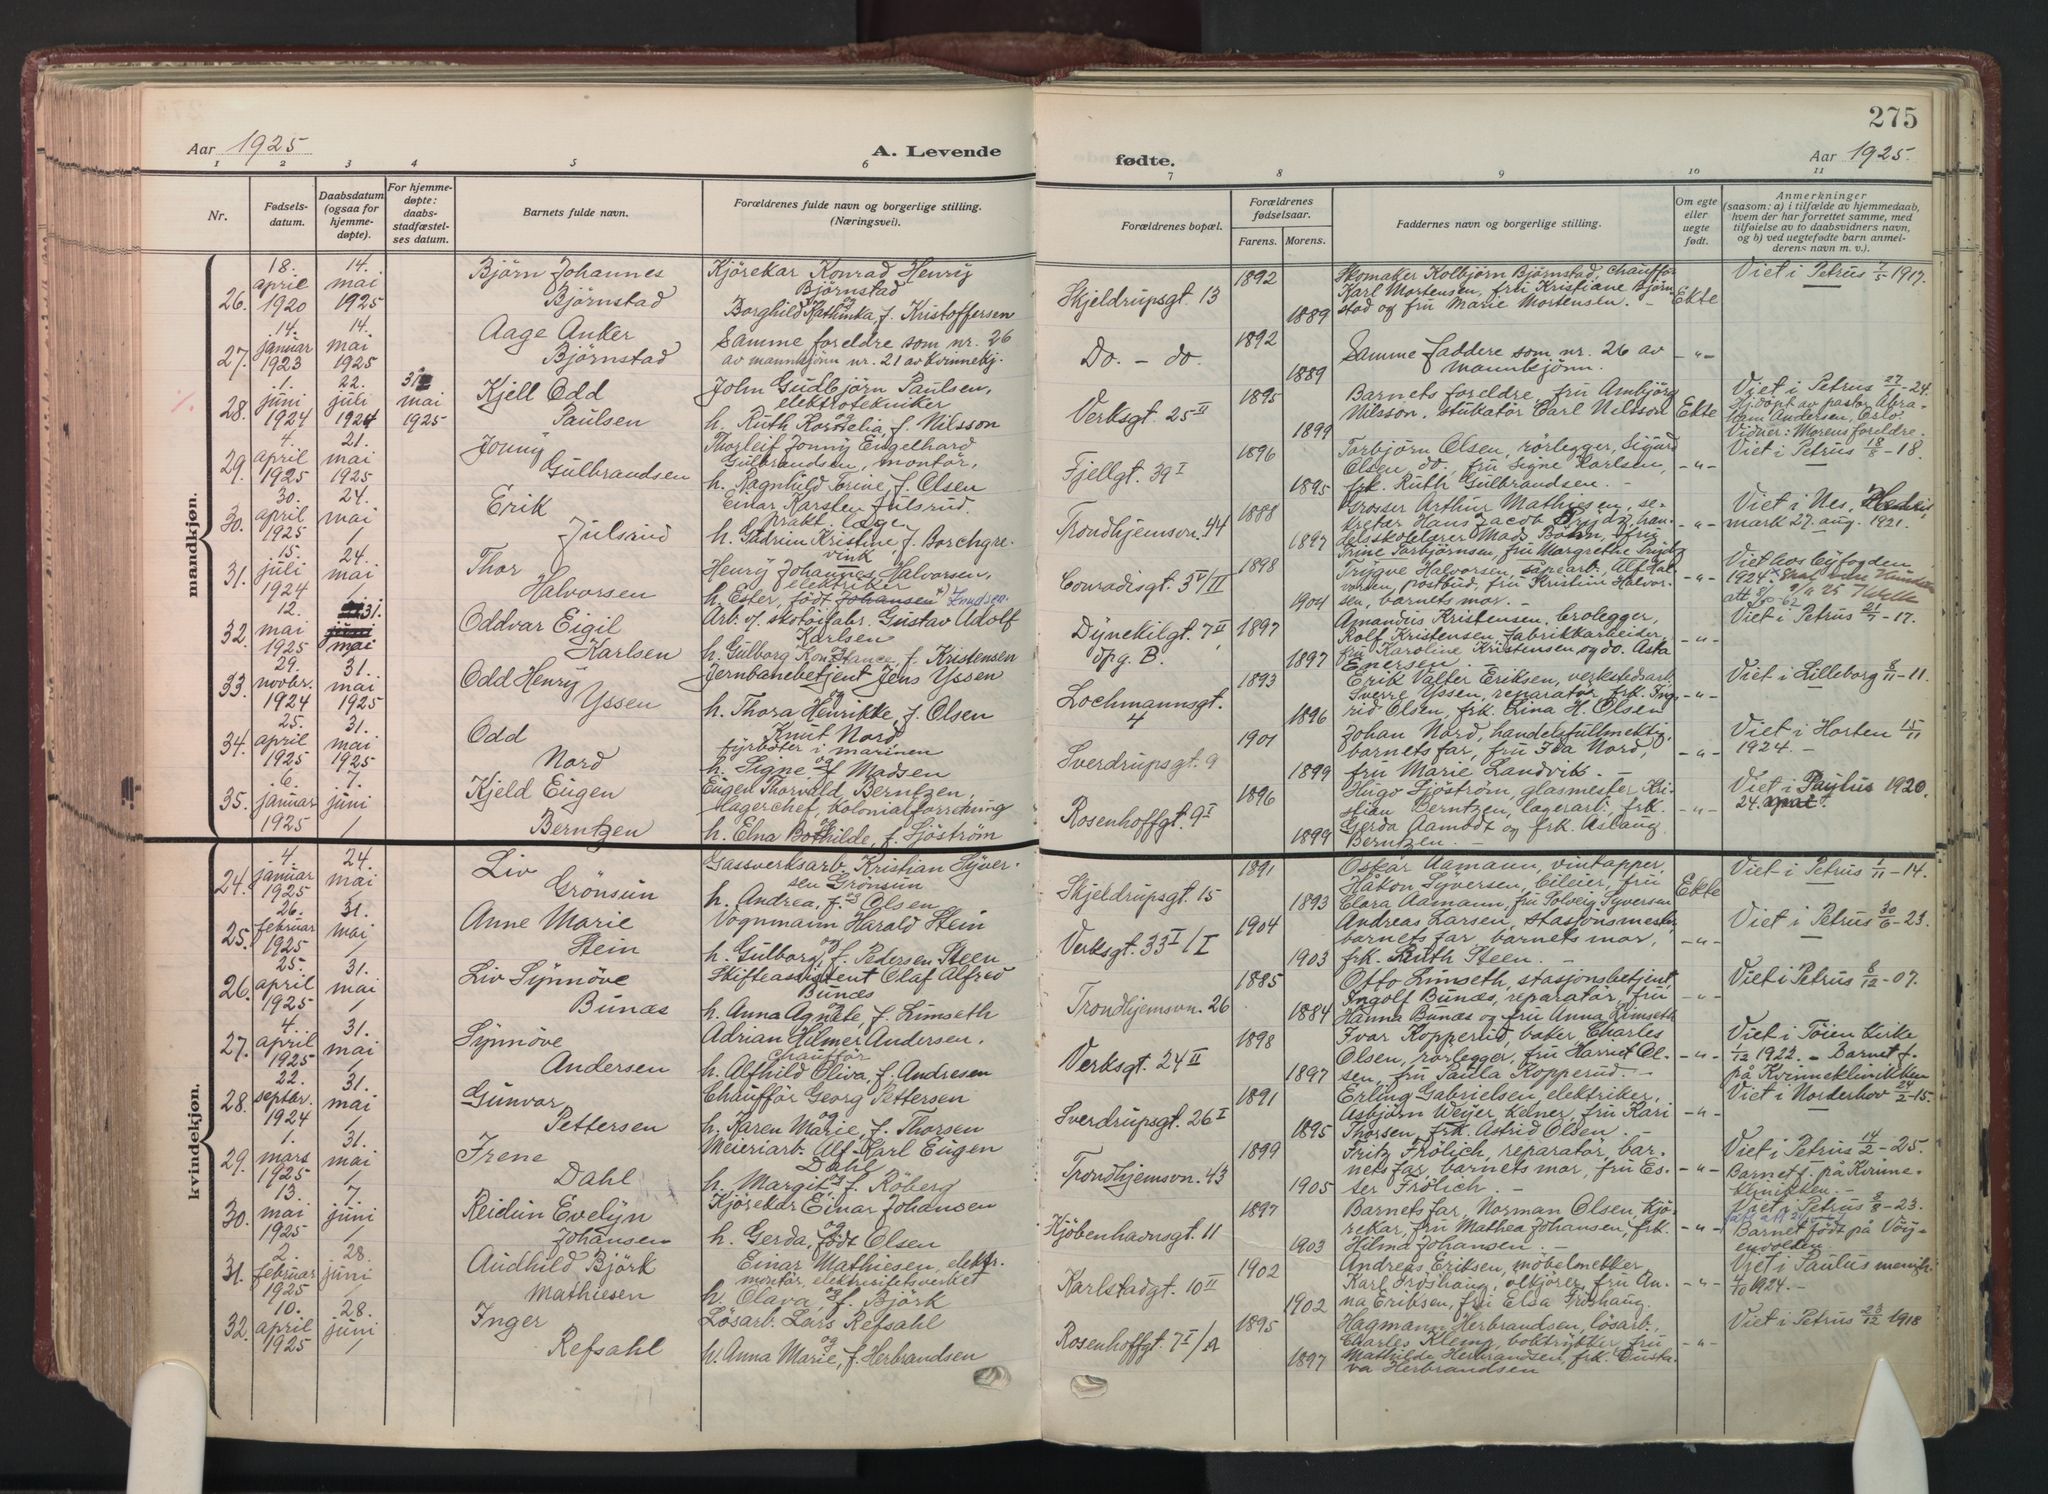 275
Aar 1925
A. Levende
fødte.
Aar 1925.
1 2 3 4 5 6 7 8 9 10 11
Nr.
Fødsels-
datum.
Daabsdatum
(ogsaa for
hjemme-
døpte).
For hjemme-
døpte:
daabs-
stadfæstel-
ses datum.
Barnets fulde navn.
Forældrenes fulde navn og borgerlige stilling.
(Næringsvei).
Forældrenes bopæl.
Forældrenes
fødselsaar.
Farens. Morens.
Faddernes navn og borgerlige stilling.
Om egte
eller
uegte
født.
Anmerkninger
(saasom: a) i tilfælde av hjemmedaab,
hvem der har forrettet samme, med
tilføielse av to daabsvidners navn,
og b) ved uegtefødte barn anmel-
derens navn m. v.).
mandkjøn.
26. 18. april 1920
14. mai 1925
Björn Johannes
Björnstad
Kjörekar Konrad Henry
Björnstad
og
Borghild Kathinka f. Kristoffersen
Skjeldrupsgt. 13
1892
1889
Skomaker Kolbjörn Björnstad, chauffør
Karl Mortensen, fru Kristiane Björn-
stad og fru Marie Mortensen. -
Ekte
Viet i Petrus 7/5 1917.
27. 14. januar 1923
14. mai 1925
Aage Anker
Björnstad
Samme foreldre som nr. 26
av mannkjönn nr. 21 av kvinnekj.
Do. - do.
1892
1889
Samme faddere som nr. 26 av
mannkjönn.
- " -
28. 1. juni 1924
22. juli 1924
31 mai 1925
Kjell Odd
Paulsen
John Gudbjörn Paulsen,
elektrotekniker
og
h. Ruth Kornelia f. Nilsson
Verksgt. 25 II
1895
1899
Barnets foreldre, fru Ambjörg
Nilsson, stubatör Carl Nilsson
Ekte
Viet i Petrus 27/1-24.
Hj. döpt av pastor Abra-
ham Andersen Oslo.
Vidner: Morens foreldre.
29. 4. april 1925
21. mai 1925
Jonny
Gulbrandsen
Thorleif Jonny Engelhard
Gulbrandsen, montör,
h. Ragnhild Torine, f. Olsen
Fjellgt. 39 I
1896
1895
Torbjörn Olsen, rörlegger, Sigurd
Olsen, do., fru Signe Karlsen,
frk. Ruth Gulbrandsen. -
- " -
Viet i Petrus 18/8-18.
30. 30. april 1925
24. mai
Erik
Julsrud
Einar Karsten Julsrud.
prakt. læge
h. Gudrun Kristine, f. Borchgre-
vink
Trondhjemsvn. 44
1888
1897
Grosser Arthur Mathiesen, se-
kretær Hans Jacob Prydz, han-
delsskolelærer Mads Böhn, fru
Trine Torbjörnsen, fru Margrethe Prydz
- " -
Viet i Nes, Hedemark
mark 27. aug. 1921.
31. 15. juli 1924
24. mai
Thor
Halvorsen
Henry Johannes Halvorsen,
elektriker
h. Ester, født Johansen x) Knudsen.
Conradisgt. 3 V/II
1898
1904
Trygve Halvorsen, sapearb. Alf Hal-
vorsen, postbud, fru Kristine Halvor-
sen, barnets mor. -
Viet hos Byfogden
1924.
32. 12. mai 1925
31. juni mai
Oddvar Eigil
Karlsen
Arb. v. skotöifabr. Gustav Adolf
Karlsen
og
h. Gulborg Konstance, f. Kristensen
Dynekilgt. 7 II
opg. B.
1897
1897
Amandus Kristensen, brolegger,
Rolf Kristensen, fabrikkarbeider,
fru Karoline Kristensen og do. Asta
Enersen. -
- " -
Viet i Petrus 21/7-17.
33. 29. novbr. 1924
31. mai 1925
Odd Henry
Yssen
Jernbanebetjent Jens Yssen
og
h. Thora Henrikke, f. Olsen
Lochmannsgt.
4
1893
1896
Erik Valter Eriksen, verkstedsarb.
Sverre Yssen, reparatør, frk. Ing-
rid Olsen, frk. Lina H. Olsen
- " -
Viet i Lilleborg 8/11-11.
34. 25. april 1925
31. mai 1925
Odd
Nord
Knut Nord
fyrböter i marinen
og
h. Signe, f. Madsen
Sverdrupsgt. 9
1901
1899
Johan Nord, handelsfullmektig,
barnets far, fru Iva Nord,
fru Marie Landvik. -
- " -
Viet i Horten 15/11
1924. -
35. 6. januar 1925
7. juni
Kjeld Eugen
Berntzen
Eugen Thorvald Berntzen,
lagerchef kolonialforretning
og
h. Elna Bothilde, f. Sjöström
Rosenhoffgt. 9 I
1896
1899
Hugo Sjöström, glasmester Kri-
stian Berntzen, lagerarb. frk.
Gerda Aamodt og frk. Aslaug
Berntzen. -
- " -
Viet i Paulus 1920.
24. april.
kvindekjøn.
24. 4. januar 1925
24. mai
Liv
Grönsun
Gassverksarb. Kristian Syver-
sen Grönsun
og
h. Andrea, f. Olsen
Skjeldrupsgt. 15
1891
1893
Oskar Aamann, vintapper,
Håkon Syversen, bileier, fru
Clara Aamann, fru Solveig Syversen
Ekte
Viet i Petrus 1/11-14.
25. 26. februar 1925
31. mai
Anne Marie
Stein
Vognmann Harald Stein
og
h. Gulborg, f. Pedersen Steen
Verksgt. 33 I/I
1904
1903
Andreas Larsen, stasjonsmester,
barnets far, barnets mor,
frk. Ruth Steen. -
- " -
Viet i Petrus 30/6-23.
26. 25. april 1925
31. mai
Liv Synnöve
Bunæs
Skifteassistent Olaf Alfred
Bunæs
og
h. Anna Agnete, f. Limseth
Trondhjemsvn. 26
1885
1884
Otto Limseth, stasjonsbetjent,
Ingolf Bunæs, reparatør, fru
Hanna Bunæs og fru Anna Limseth
- " -
Viet i Petrus 8/12-07.
27. 4. april 1925
31. mai
Synnöve
Andersen
Adrian Hilmer Andersen.
chauffør
h. Alfhild Oliva, f. Andresen
Verksgt. 24 II
1898
1897
Ivar Kopperud, baker, Charles
Olsen, rörlegger, fru Harriet Ol-
sen, fru Paula Kopperud. -
- " -
Viet i Töien kirke
1/12 1922. - Barnet f.
på Kvinneklinikken
28. 22. septbr. 1924
31. mai
Gunvor
Pettersen
Chauffør Georg Pettersen
og
h. Karen Marie, f. Thorsen
Sverdrupsgt. 26 I
1891
1895
Erling Gabrielsen, elektriker,
Asbjörn Weijer, kelner, fru Kari
Thorsen, frk. Astrid Olsen. -
- " -
Viet i Norderhov 24/2-15.
29. 1. mars 1925
31. mai
Irene
Dahl
Meieriarb. Alf Karl Eugen
Dahl
og
h. Margit, f. Röberg
Trondhjemsvn. 43
1899
1905
Fritz Frölich, reparatør, bar-
nets far, barnets mor, fru Es-
ter Frölich. -
- " -
Viet i Petrus 14/2-25.
Barnet f. på Kvinne-
klinikken. -
30. 13. mai 1925
7. juni
Reidun Evelyn
Johansen
Kjörekar Einar Johansen
og
h. Gerda, født Olsen
Kjöbenhavnsgt. 11
1897
1903
Barnets far, Norman Olsen, kjö-
rekar, fru Mathea Johansen, frk.
Hilma Johansen. -
- " -
Viet i Petrus 8/8-23.
Barnet født på Vöy-
envolden.
31. 2. februar 1925
28. juni
Audhild Björk
Mathiesen
Einar Mathiesen, elektr.
montør, elektrisitetsverket
og
h. Olava, f. Björk
Karlstadgt. 10 II
1902
1902
Andreas Eriksen, möbelmekker,
Karl Froshaug, olkjörer, fru An-
na Eriksen, fru Elsa Froshaug.
- " -
Viet i Paulus menigh.
4/10 1924. -
32. 10. april 1925
28. juni
Inger
Refsahl
Lösarb. Lars Refsahl
og
h. Anna Marie, f. Herbrandsen
Rosenhoffgt. 7 I/A
1895
1897
Hagmann Herbrandsen, lösarb.,
Charles Kleing, boktrykker, fru
Mathilde Herbrandsen, frk. Gusta-
va Herbrandsen
- " -
Viet i Petrus 23/12 1918